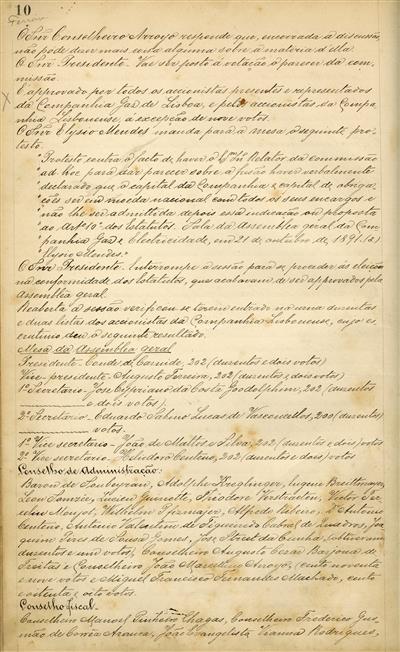 10
O Snr Conselheiro Arroyo responde que, encerrada a discussão,
não pode dizer mais coisa alguma sobre a materia d'ella.
O Snr Presidente. Vae ser posto á votação o parecer da com-
missão.
É approvado por todos os accionistas presentes e representados
da Companhia Gaz de Lisboa, e pelos accionistas da Compa-
nhia Lisbonense, á excepção de nove votos.
O Snr Elysio Mendes manda para a mesa o seguinte pro-
testo.
"Protesto contra o facto de haver o Exmo Snr Relator da commissão
"ad hoc para dar parecer sobre a fusão haver verbalmente
"declarado que o capital da Companhia e capital de obriga-
"ções seria em moeda nacional com todos os seus encargos e
"não lhe ser admittida depois esta indicação ou proposta
"ao Artº 10º dos Estatutos. Sala da Assemblea geral da Com-
"panhia Gaz e Electricidade, em 21 de outubro de 1891. (a)
"Elysio Mendes."
O Snr Presidente. Interrompe a sessão para se proceder ás eleições
na conformidade dos Estatutos, que acabavam de ser approvados pela
Assemblea geral.
Reaberta a sessão verificou-se terem entrado na urna duzentas
e duas listas dos accionistas da Companhia Lisbonense, cujo es-
crutinio deu o seguinte resultado.
Mesa da Assemblea geral
Presidente - Conde de Carnide, 202 (duzentos e dois votos)
Vice-presidente - Augusto Ferreira, 202 (duzentos e dois votos)
1º Secretario - José Cypriano da Costa Goodolphim, 202 (duzentos
e dois votos)
2º Secretario - Eduardo Sabino Lucas de Vasconcellos, 200 (duzentos)
votos.
1º Vice secretario - João de Mattos e Silva, 202 (duzentos e dois) votos
2º Vice secretario - Heliodoro Centeno, 202 (duzentos e dois) votos
Conselho de Administração:
Baron de Soubeyran, Adolphe Kreglinger,
Leon Somzée, Lucien Guinotte, Théodore Verstraeten, Victor
Wilhelm Alfredo Ribeiro, D. Antonio
Centeno, Antonio de Figueiredo Cabral de Quadros, Joa-
quim Pires de Sousa Gomes, José Street da Cunha, obtiveram
duzentos e um votos, Conselheiro Augusto Cezar Barjona de
Freitas e Conselheiro João Marcellino Arroyo, (cento noventa
e nove votos e Miguel Francisco Fernandes Machado, cento
e oitenta e oito votos.
Conselho fiscal.
Conselheiro Manoel Pinheiro Chagas, Conselheiro Frederico Gus-
mão de Corrêa Arouca, João Evangelista Vianna Rodrigues,